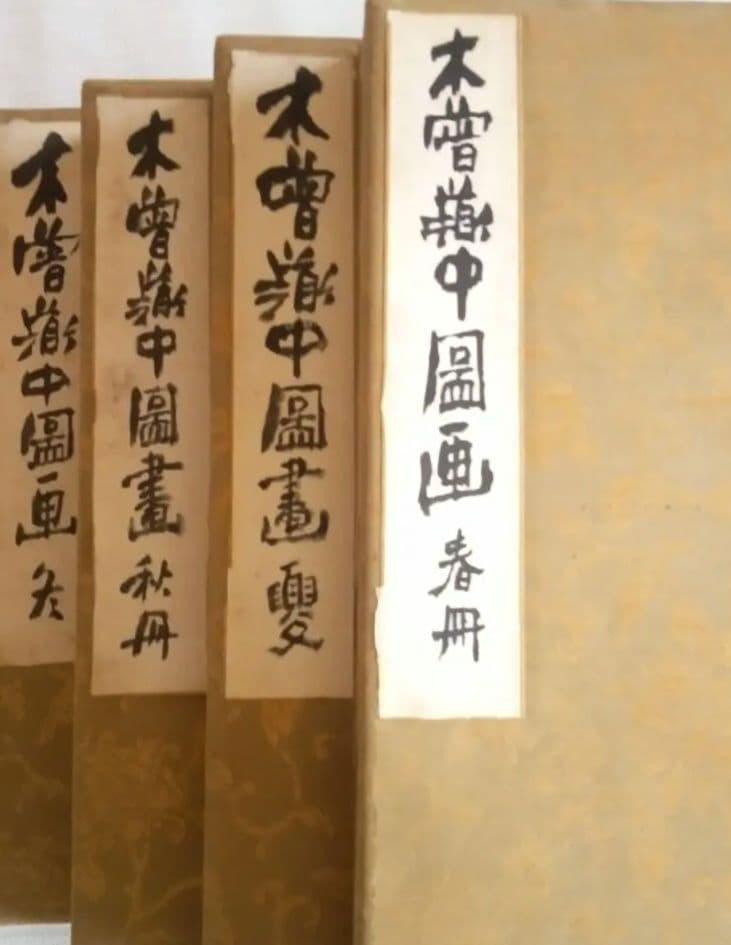 木曾嶽中圖画 春冊
木曾嶽中圖畫 夏
木曾嶽中圖畫 秋冊
木曾嶽中圖画 冬